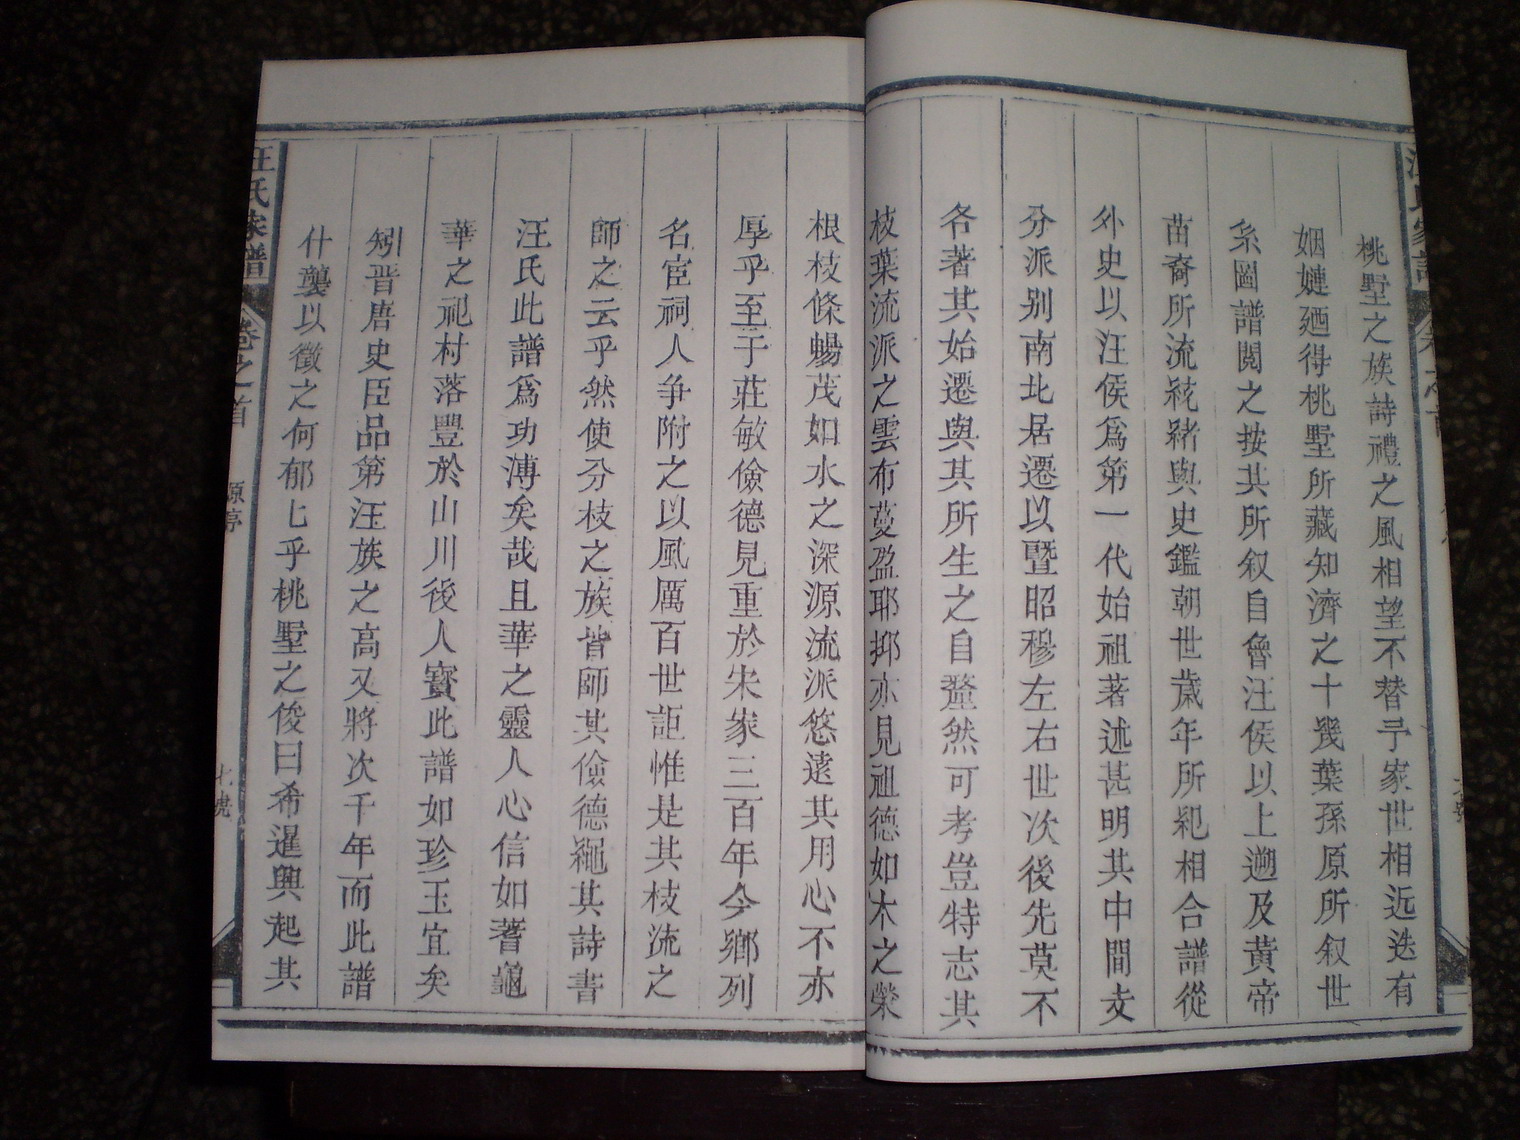 桃墅之族詩禮之風相望不替予家世相近迭有
姻婕廼得桃墅所藏知濟之十幾葉孫原所叙世
糸圖譜閱之按其所叙自魯汪侯以上遡及黄帝
苗裔所流綋緒與史鑑朝世歲年所紀相合譜從
外史以汪侯爲第一代始祖著述甚明其中間支
分派别南北居遷以暨昭穆左右世次後先莫不
各著其始遷與其所生之自釐然可考豈特志其
枝葉流派之雲布蔓盈耶抑亦見祖德如木之榮
根枝條暢茂如水之深源流派悠遠其用心不亦
厚乎至于莊敏儉德見重於宋家三百年今鄉列
名宦祠人爭附之以風厲百世詎惟是其枝流之
師之云乎然使分枝之族皆師其儉德繩其詩書
汪氏此譜爲功溥矣哉且華之靈人心信如蓍龜
華之祀村落豐於山川後人寳此譜如珍玉宜矣
矧晋唐史臣品第汪族之高又將次千年而此譜
什襲以徵之何郁匕乎桃墅之俊曰希暹興起其
汪氏家譜 卷之首 源亭 七號